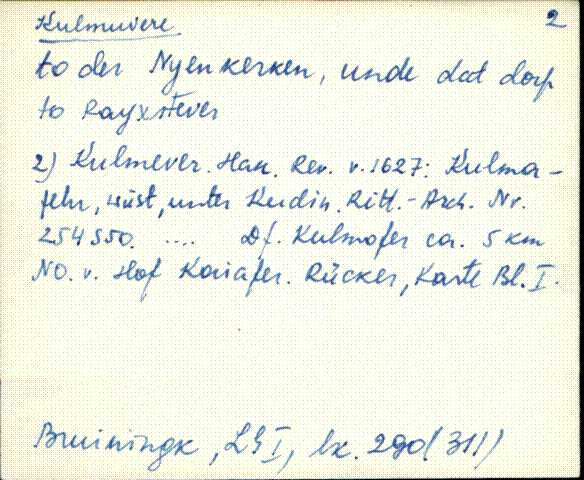 Kulmuvere 2
to der Nyenkerken, unde dat dorp
to Rayxstever
2) Kulmever. Hak. Rev. v. 1627: Kulma-
fehr, wüst, unter Kudin. Ritt.-Arch. Nr.
254 S 50. .... Df. Kulmofer ca. 5 km
NO. v. Hof Kaiafer. Rücker, Karte Bl. I.
Bruiningk, LG I, lk. 290 (311)